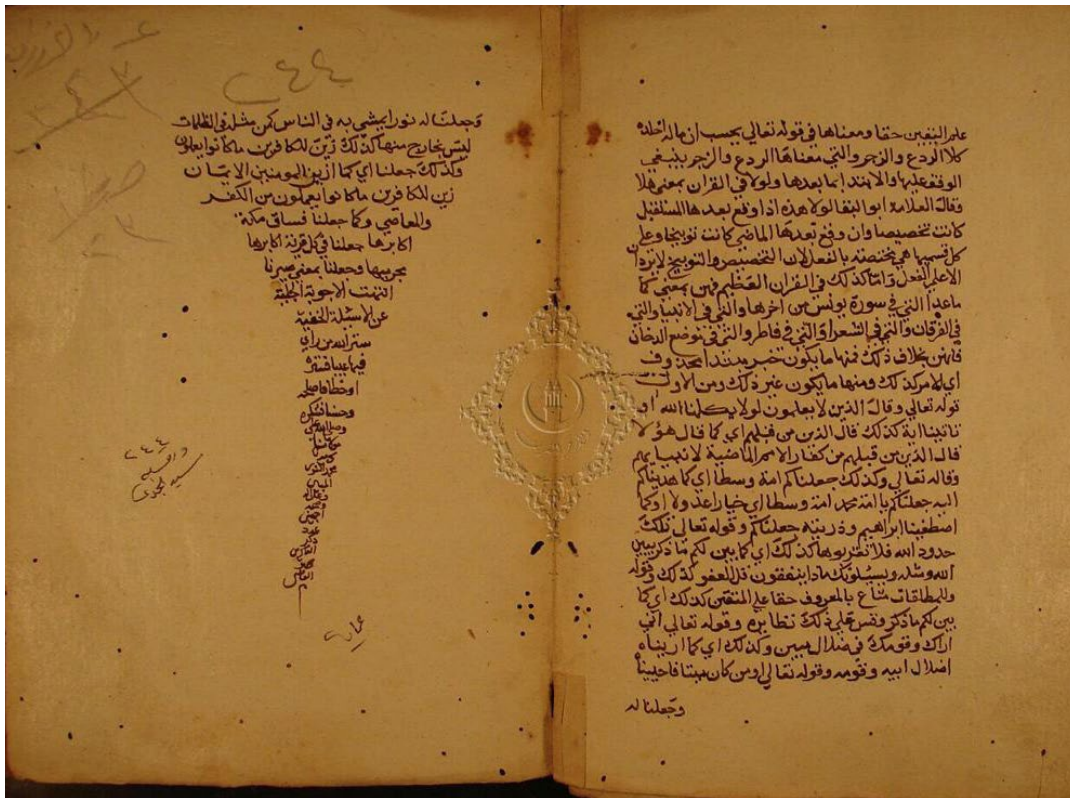 علم اليقين حقا ومعناها في قوله تعالي يحسب ان ماله اخلده
كلا الردع والزجر والتي معناها الردع والزجر ينبغي
الوقف عليها والابتدا بما بعدها ولولا في القران بمعني هلا
وقال العلامة ابو البقا لولا هذه اذا وقع بعدها المستقبل
كانت تخصيصا وان وقع بعدها الماضي كانت توبيخا وعلي
كل قسميها هي مختصة بالفعل لان التخصيص والتوبيخ لا يردان
الا علي الفعل واما كذلك في القران العظيم فهي بمعني كما
ماعدا التي في سورة يونس من اخرها والتي في الانبيا والتي
في الفرقان والتي في الشعرا والتي في فاطر والتي في موضع الدخان
فانهن بخلاف ذلك فمنها ما يكون خبر مبتدا محذوف
اي الامر كذلك ومنها ما يكون غير ذلك ومن الاول
قوله تعالي وقال الذين لا يعلمون لولا يكلمنا الله او
تاتينا اية كذلك قال الذين من قبلهم اي كما قال هؤلا
قال الذين من قبلهم من كفار الامم الماضية لانبيايهم
وقاله تعالي وكذلك جعلناكم امة وسطا اي كما هديناكم
اليه جعلناكم يا امة محمد امة وسطا اي خيارا عدولا او كما
اصطفينا ابراهيم وذريته جعلناكم وقوله تعالي تلك
حدود الله فلا تقربوها كذلك اي كما بين لكم ما ذكر يبين
الله ومثله ويسيلونك ماذا ينفقون قل العفو كذلك وقوله
وللمطلقات متاع بالمعروف حقا علي المتقين كذلك اي كما
بين لكم ما ذكر وقس علي ذلك نظايره وقوله تعالي اني
اراك وقومك في ضلال مبين وكذلك اي كما اريناه
اضلال ابيه وقومه وقوله تعالي اومن كان ميتا فاحييناه
وجعلنا له
٢٤٤
وجعلنا له نورا يمشي به في الناس كمن مثله في الظلمات
ليس بخارج منها كذلك زين للكافرين ما كانوا يعملون
وكذلك جعلنا اي كما ازين المومنين الايمان
زين للكافرين ما كانوا يعملون من الكفر
والمعاصي وكما جعلنا فساق مكة
اكابرها جعلنا في كل قرية اكابرها
مجرميها وجعلنا بمعني صيرنا
انتهت الاجوبة الجلية
عن الاسئلة الخفية
ستر الله من راي
فيها عيبا فستره
او خطا فاصلحه